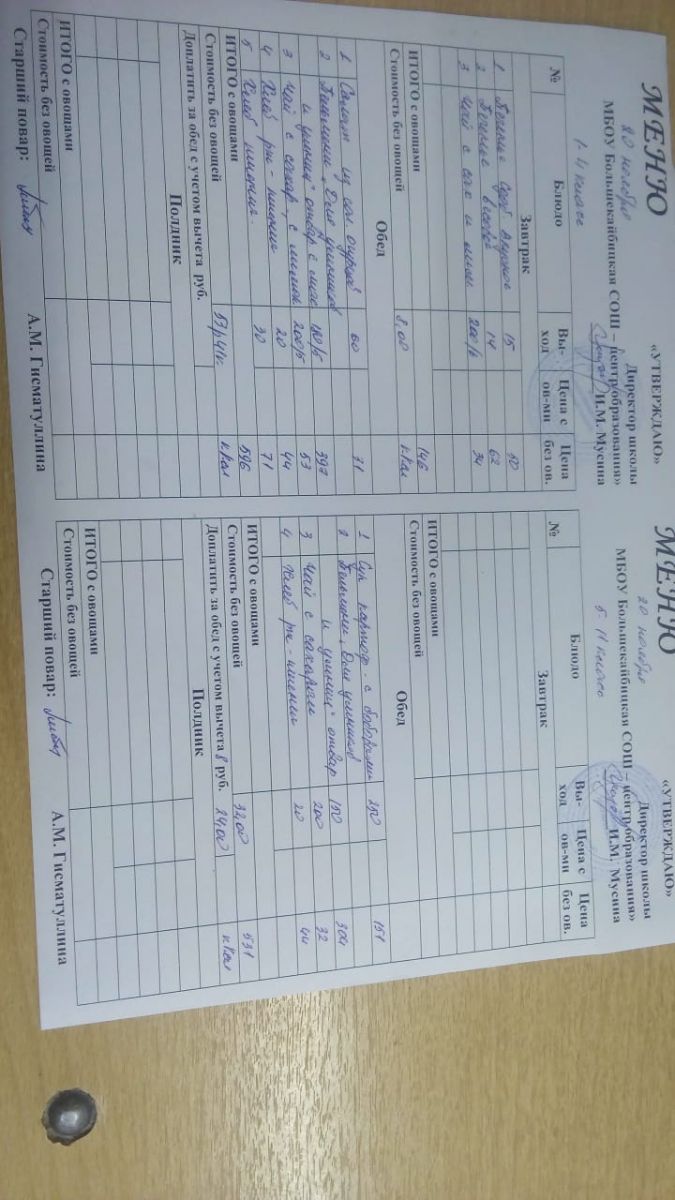 МЕНЮ
«УТВЕРЖДАЮ»
Директор школы
МБОУ Большекайбицкая СОШ – центр образования»
И.М. Мусина
20 ноября
1-4 класс
№ Блюдо Вы- ход Цена с ов-ми Цена без ов.
Завтрак
1 Печенье 15 50
2 Печенье 14 62
3 Чай с сах и 200/6 34
ИТОГО с овощами 146
Стоимость без овощей 8,00 кКал
Обед
1 Салат из сол. огурцов 60 71
2 Пельмени "Для ужинков
и ужиниц" отвар с масл 180/5 397
3 Чай с сахар, с 200/5 53
4 Хлеб рж-пшенич 20 44
5 Хлеб пшенич. 30 71
ИТОГО с овощами 596
Стоимость без овощей 53р41к. кКал
Доплатить за обед с учетом вычета руб.
Полдник
ИТОГО с овощами
Стоимость без овощей
Старший повар: А.М. Гисматуллина
МЕНЮ
«УТВЕРЖДАЮ»
Директор школы
МБОУ Большекайбицкая СОШ – центр образования»
И.М. Мусина
20 ноября
5-11 класс
№ Блюдо Вы- ход Цена с ов-ми Цена без ов.
Завтрак
ИТОГО с овощами
Стоимость без овощей
Обед
1 Суп картоф. с бобовыми 250 151
2 Пельмени "Для ужинков
и ужиниц" отвар 150 304
3 Чай с сахаром 200 32
4 Хлеб рж-пшенич 20 44
ИТОГО с овощами 531
Стоимость без овощей 32,00 кКал
Доплатить за обед с учетом вычета 8 руб. 24,00
Полдник
ИТОГО с овощами
Стоимость без овощей
Старший повар: А.М. Гисматуллина